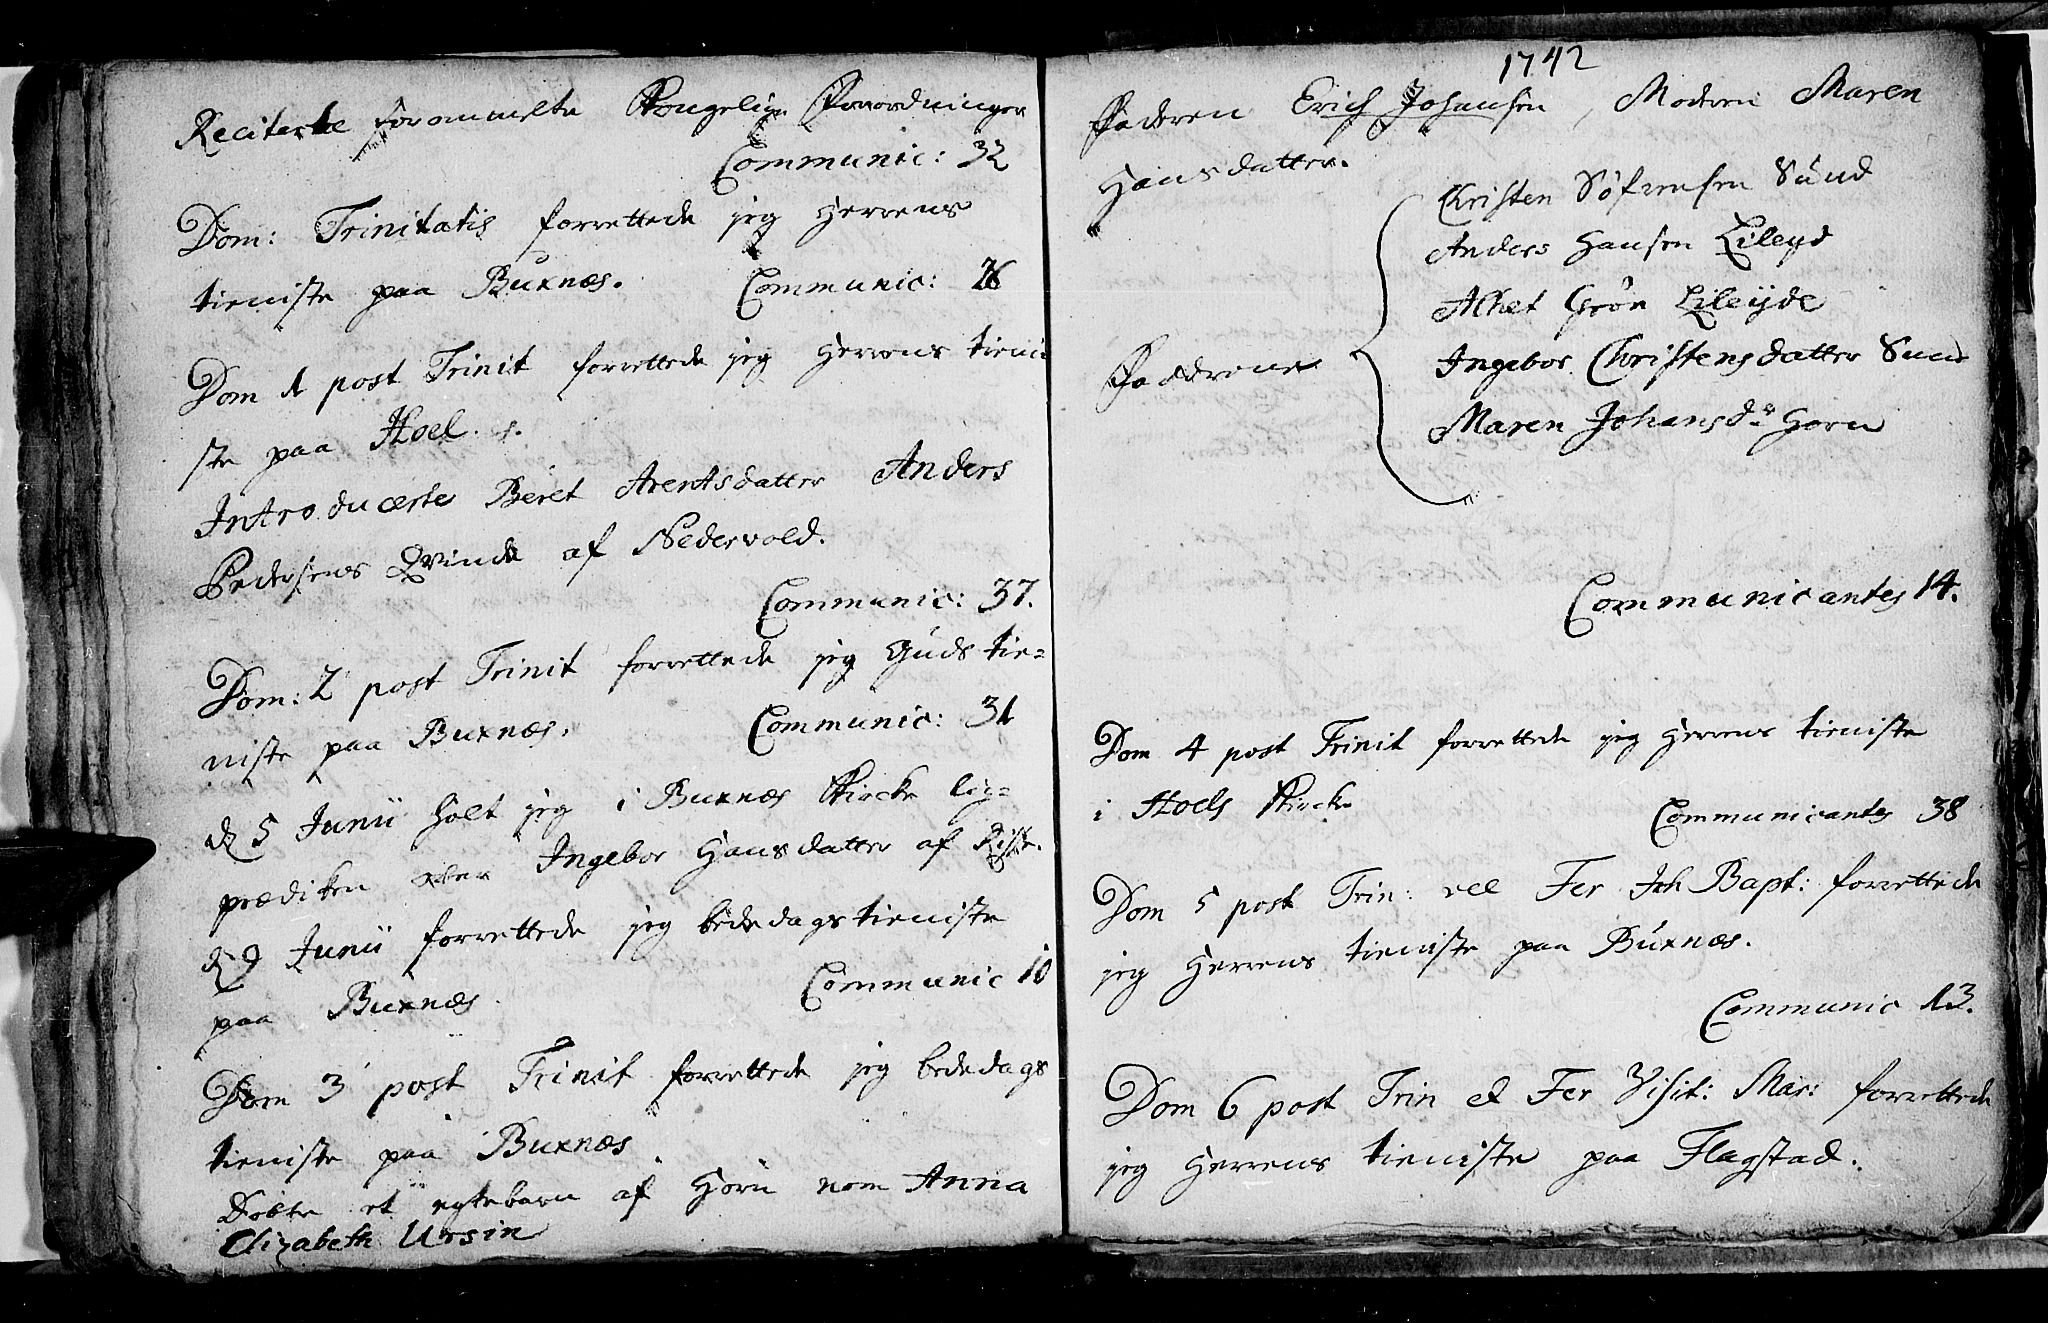 Reciterte forommelte Kongelige Forordninger
Communic: 32
Dom: Trinitatis forrettede jeg Herrens
tieniste paa Buxnæs. Communic: 26
Dom 1 post Trinit forrettede jeg Herrens tieni
ste paa Hoel.
Introducerte Beret Arentsdatter Anders
Pedersens Qvinde af Nedervold.
Communic: 37.
Dom: 2 post Trinit forrettede jeg Guds tie=
niste paa Buxnæs. Communic: 31
d 5 Junii holt jeg i Buxnæs Kircke lig=
prædiken over Ingebor Hansdatter af
d 9 Junii forrettede jeg bededags tieniste
paa Buxnæs. Communic 10
Dom 3 post Trinit forrettede jeg bededags
tieniste paa Buxnæs
Døbte et egtebarn af Horn nom Anna
Elizabeth Ursin
1742
Faderen Erich Johansen, Moderen Maren
Hansdatter.
Christen Søfrensen Sund
Anders Hansen Lileyd
Alhet Grøn Lileyde
Fadderne Ingebor Christensdatter Sund
Maren Johansdr Horn
Communicantes 14.
Dom 4 post Trinit forrettede jeg Herrens tieniste
i Hoels Kircke Communicantes 38
Dom 5 post Trin: vel Fer Joh Bapt: forrettede
jeg Herrens tieniste paa Buxnæs.
Communic 13.
Dom 6 post Trin et Fer Visit: Mar: forrettede
jeg Herrens tieniste paa Flagstad.